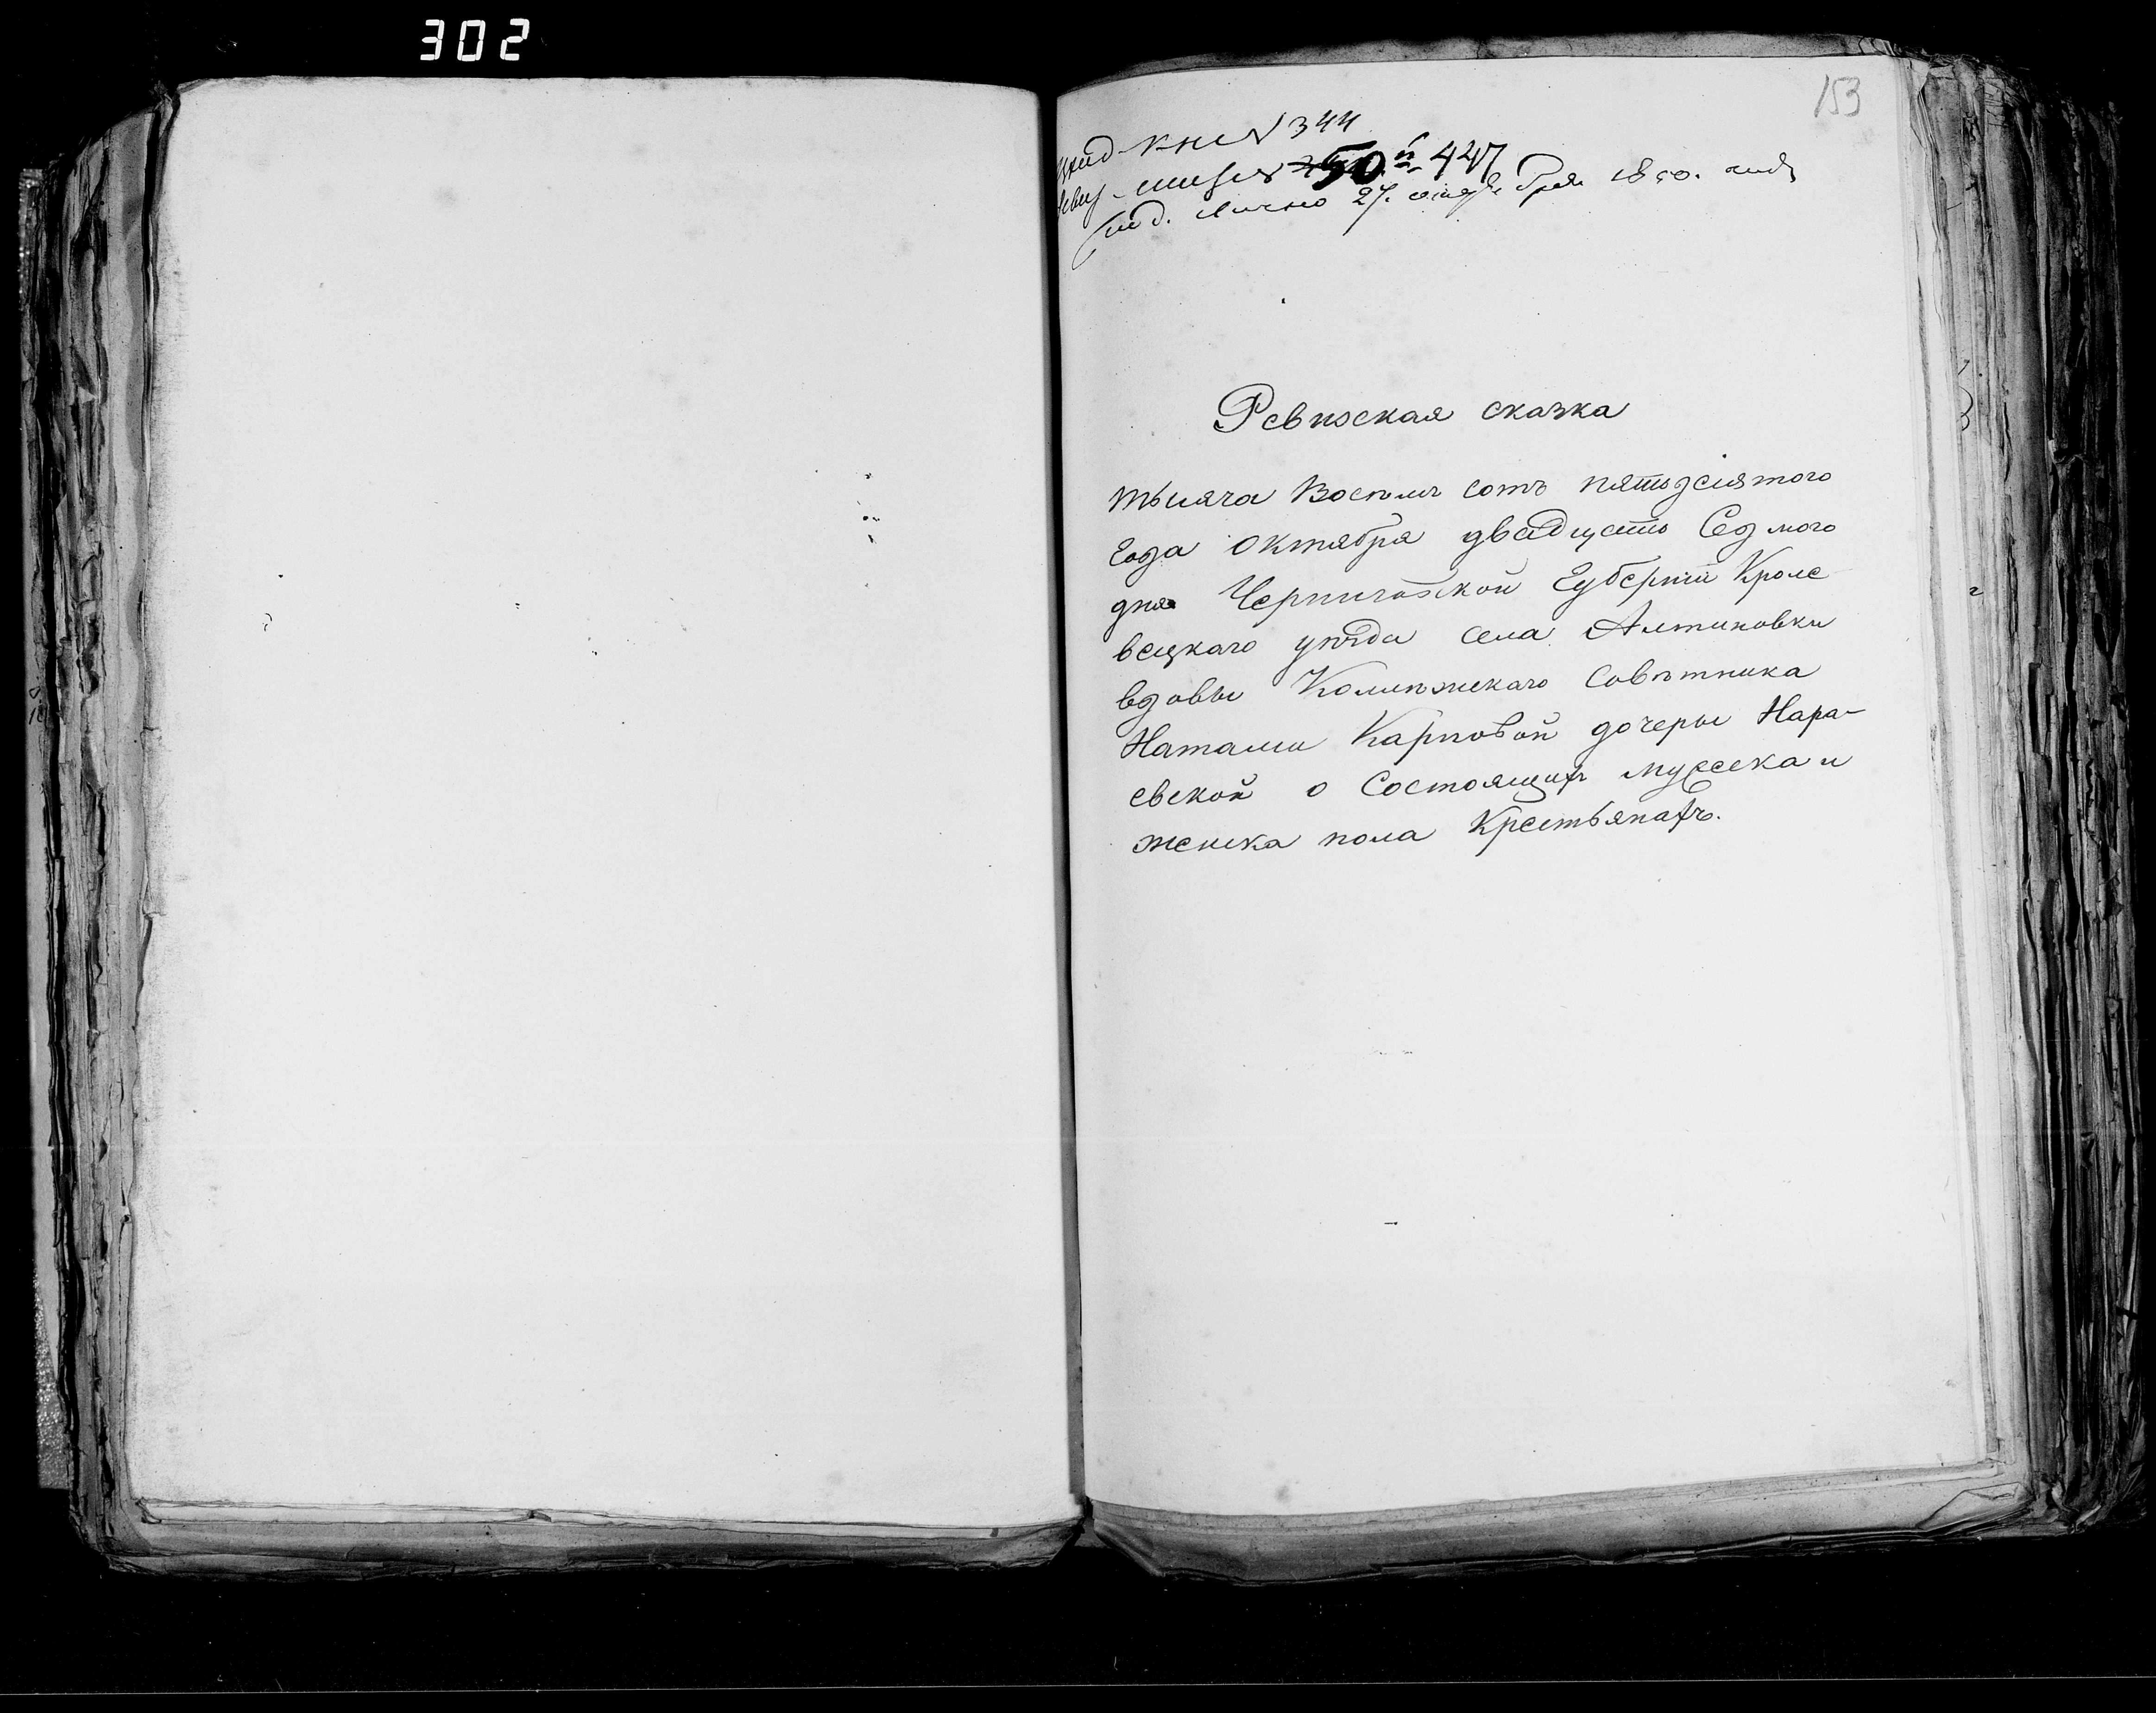 302
153
кни № 344
50. й 447
лично 27. октября 1850. года
Ревизская сказка
тысяча Восемь сотъ пятьдесятого
года Октября двадцать Седмого
дня Черниговской Губерніи Кроле
вецкаго уѣзда села Алтиновки
вдовы Колѣжскаго Совѣтника
Наталіи Карповой дочеры Нара-
евской о Состоящихъ мужеска и
женска пола Крестьянахъ.